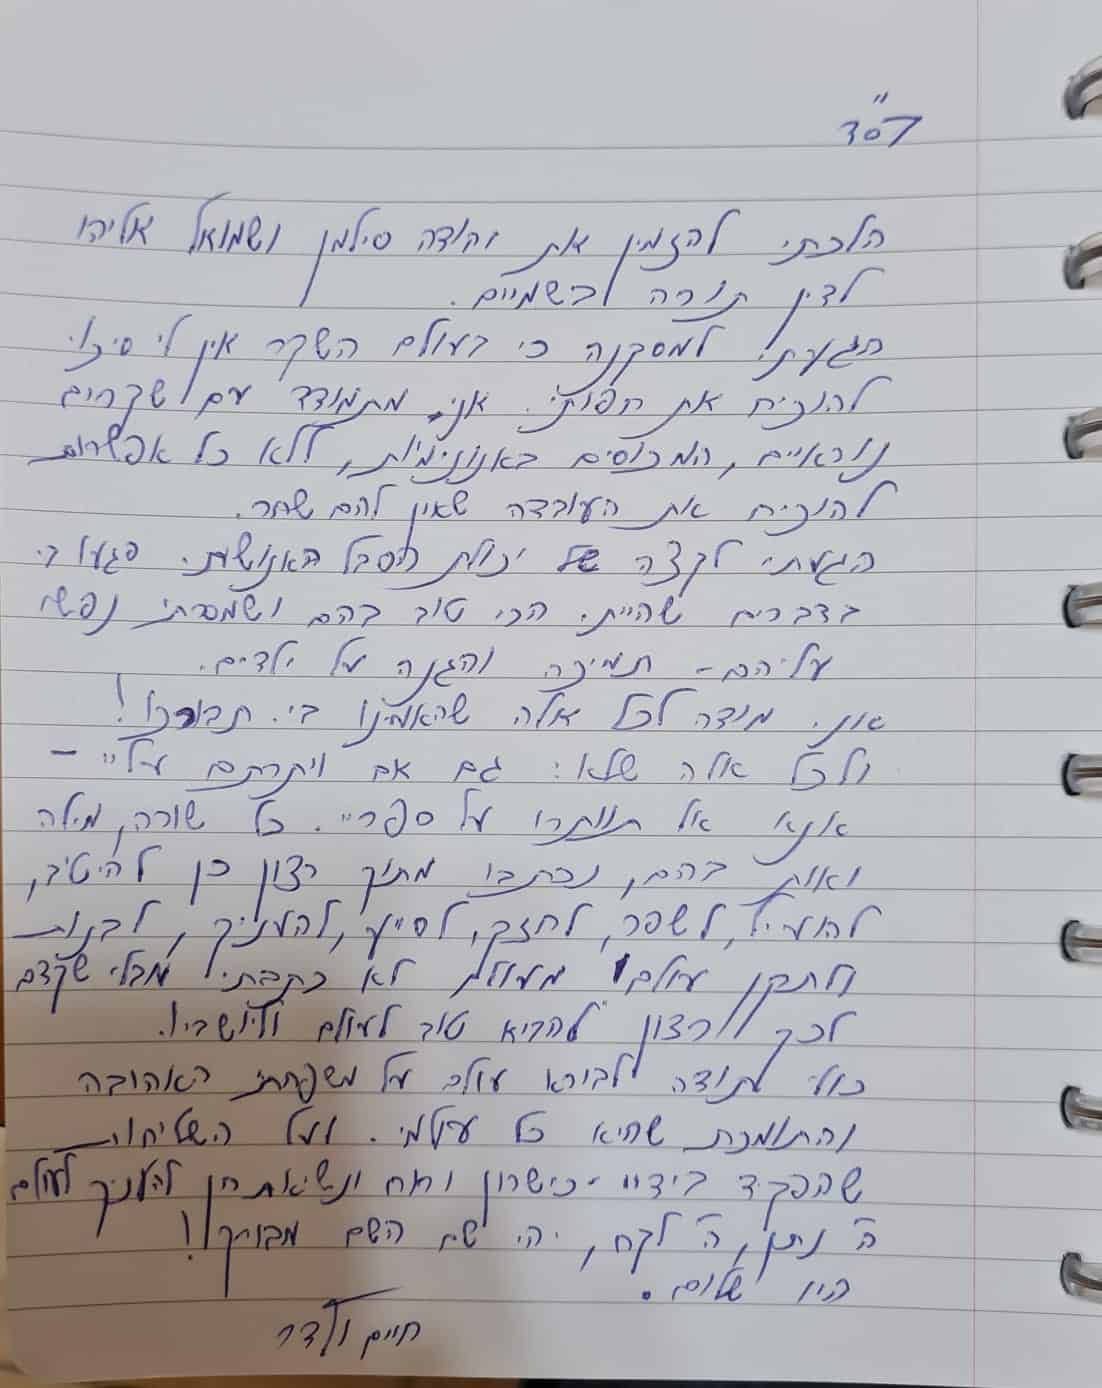 בסד"
הלכתי להזמין את יהודה סילמן ושמואל אליהו
לדין תורה בשמיים.
הגעתי למסקנה כי בעולם השקר אין לי סיכוי
להוכיח את חפותי. אני מתמודד עם שקרים
נוראיים, המכוסים באנונימיות, ללא כל אפשרות
להוכיח את העובדה שאין להם שחר.
הגעתי לקצה של יכולת הסבל האנושית. פגעו בי
בדברים שהייתי הכי טוב בהם ושמסרתי נפשי
עליהם - תמיכה והגנה על ילדים.
אני מודה לכל אלה שהאמינו בי. תבורכו!
ולכל אלה שלא: גם אם ויתרתם עליי -
אנא אל תוותרו על ספריי. כל שורה, מילה
ואות בהם, נכתבו מתוך רצון כן להיטיב,
להועיל, לשפר, לחזק, לסייע, להעניק, לבנות
ולתקן עולם מעולם לא כתבתי מבלי שקדם
לכך רצון להביא טוב לעולם וליושביו.
כולי תודה לבורא עולם על משפחתי האהובה
והתומכת שהיא כל עולמי. ועל השליחות
שהפקיד בידיי - כישרון וחן ונשיאת חן להעניק לעולם
ה' נתן, ה' לקח, יהי שם השם מבורך!
היו שלום.
חיים ולדר